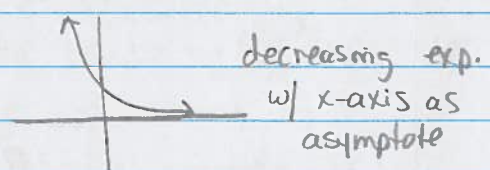 decreasing exp.
w/ x-axis as
asymptote